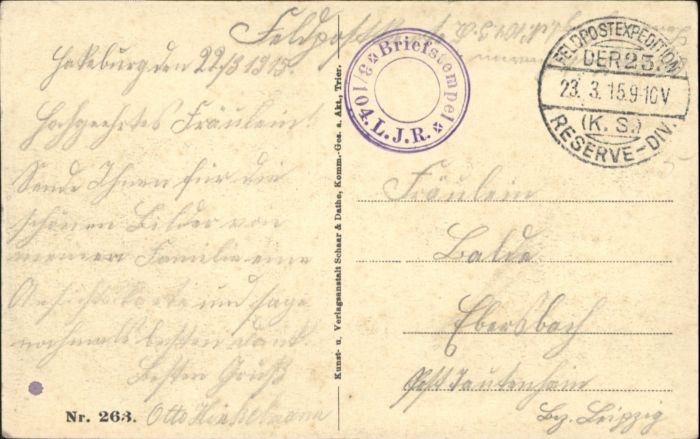 Feldpost
Hakeburg den 22/3 1915.
Hochgeehrtes Fräulein!
Sende Ihnen für die
schönen Bilder von
meiner Familie eine
Ansichtskarte und sage
nochmals besten Dank.
Besten Gruß
Otto Hinkelmann
Nr. 263.
Kunst- u. Verlagsanstalt Schaar & Dathe, Komm.-Ges. a. Akt., Trier.
Briefstempel
3/104. L.J.R.
FELDPOSTEXPEDITION
DER 23.
23. 3. 15. 9-10V
(K. S.)
RESERVE-DIV.
Fräulein
Balde
Ebersbach
Post Lautenhain
Bz. Leipzig